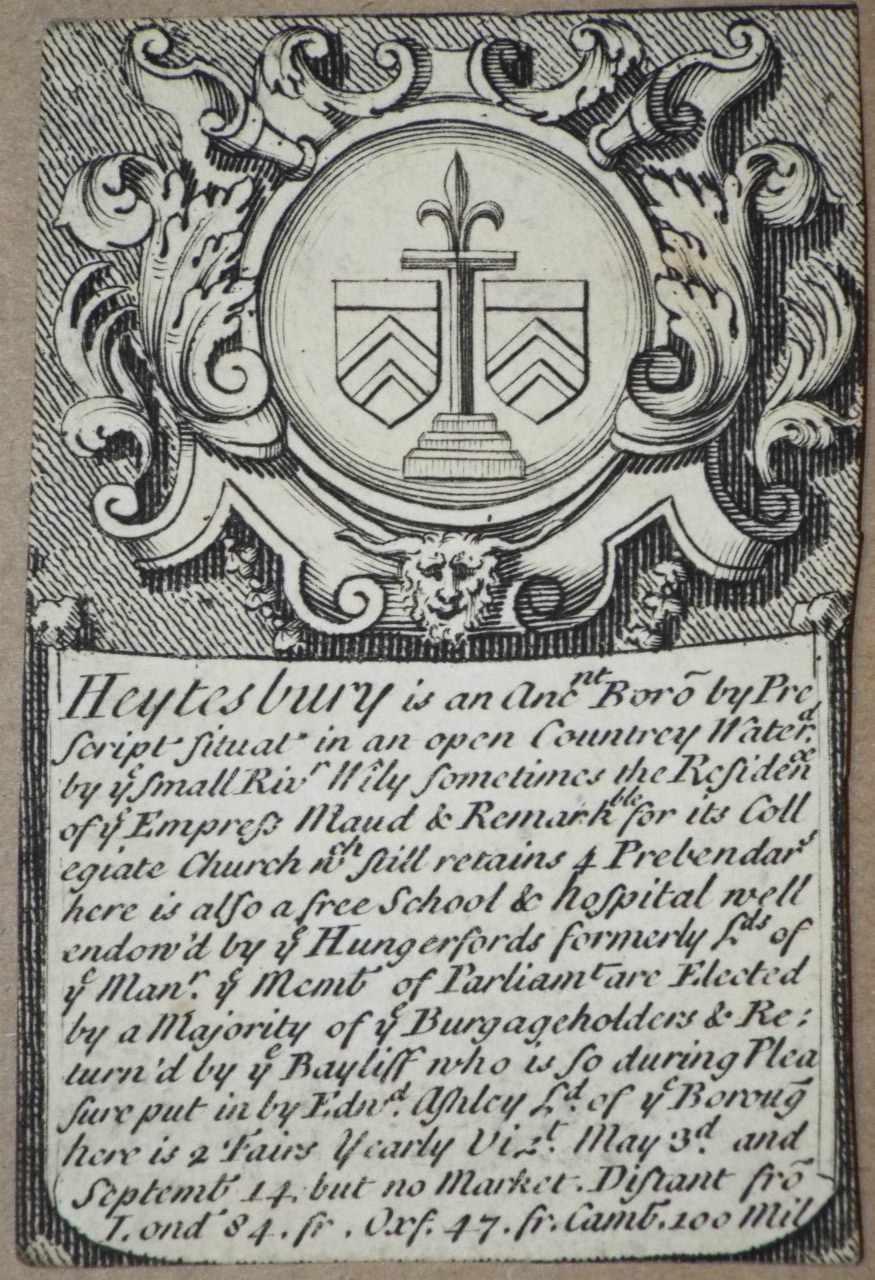 Heytesbury is an Anc.nt Borõ by Pre
script situat in an open Countrey Water.d
by ye small Rivr Wily sometimes the Residence
of ye Empreſs Maud & Remarkble for its Coll
egiate Church wch still retains 4 Prebendars
here is also a free School & hospital well
endow'd by ye Hungerfords formerly Lds of
ye Manr. ye Memb of Parliamt are Elected
by a Majority of ye Burgageholders & Re:
turn'd by ye Bayliff who is so during Plea
sure put in by Edwd. Ashley Ld. of ye Boroug̃
here is 2 Fairs Yearly Vizt. May 3d. and
Septemb 14. but no Market. Distant frõ
Lond 84. fr. Oxf. 47. fr. Camb. 100 Mil